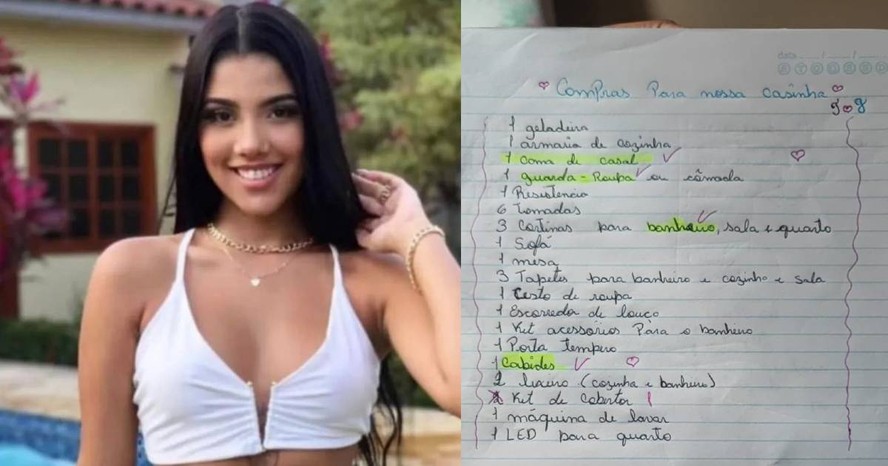 data ___/___/___
S T Q Q S S D
Compras Para nossa Casinha
J 8
1 geladeira
1 armario de cozinha
1 cama de casal
1 guarda-Roupa ou cômoda
1 Resistencia
6 Tomadas
3 Cortinas para banheiro, sala e quarto
1 Sofá
1 mesa
3 Tapetes para banheiro e cozinha e sala
1 Cesto de roupa
1 Escorredor de louça
1 Kit acessorios Para o banheiro
1 Porta tempero
1 Cabides
2 lixeiro (cozinha e banheiro)
Kit de Cobertor 1
1 máquina de lavar
1 LED para quarto